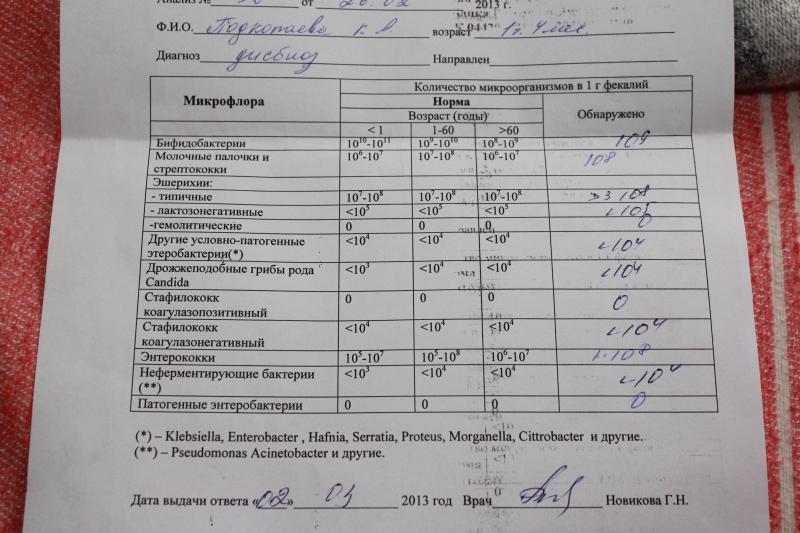 от 26.02 2013 г.
Ф.И.О. Подкопаева К. А. возраст 1г. 4 мес.
Диагноз дисбиоз Направлен
Микрофлора
Количество микроорганизмов в 1 г фекалий
Норма
Обнаружено
Возраст (годы)
< 1 1-60 >60
Бифидобактерии 10¹⁰-10¹¹ 10⁹-10¹⁰ 10⁸-10⁹ 10⁹
Молочные палочки и 10⁶-10⁷ 10⁷-10⁸ 10⁶-10⁷ 10⁸
стрептококки
Эшерихии:
- типичные 10⁷-10⁸ 10⁷-10⁸ 10⁷-10⁸ 3 10⁸
- лактозонегативные <10⁵ <10⁵ <10⁵ <10⁵
-гемолитические 0 0 0 0
Другие условно-патогенные <10⁴ <10⁴ <10⁴ <10⁴
этеробактерии(*)
Дрожжеподобные грибы рода <10³ <10⁴ <10⁴ <10⁴
Candida
Стафилококк 0 0 0 0
коагулазопозитивный
Стафилококк <10⁴ <10⁴ <10⁴ <10⁴
коагулазонегативный
Энтерококки 10⁵-10⁷ 10⁵-10⁸ 10⁶-10⁷ 10⁸
Неферментирующие бактерии <10³ <10⁴ <10⁴ <10⁴
(**)
Патогенные энтеробактерии 0 0 0 0
(*) – Klebsiella, Enterobacter , Hafnia, Serratia, Proteus, Morganella, Cittrobacter и другие.
(**) – Pseudomonas Acinetobacter и другие.
Дата выдачи ответа «02» 03 2013 год Врач Новикова Г.Н.